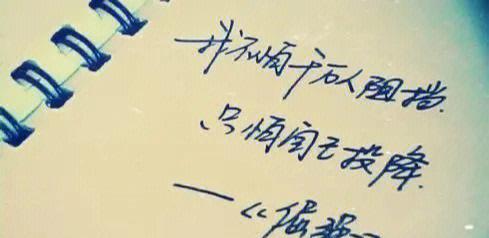 我不怕千万人阻挡.
只怕自己投降.
——《倔强